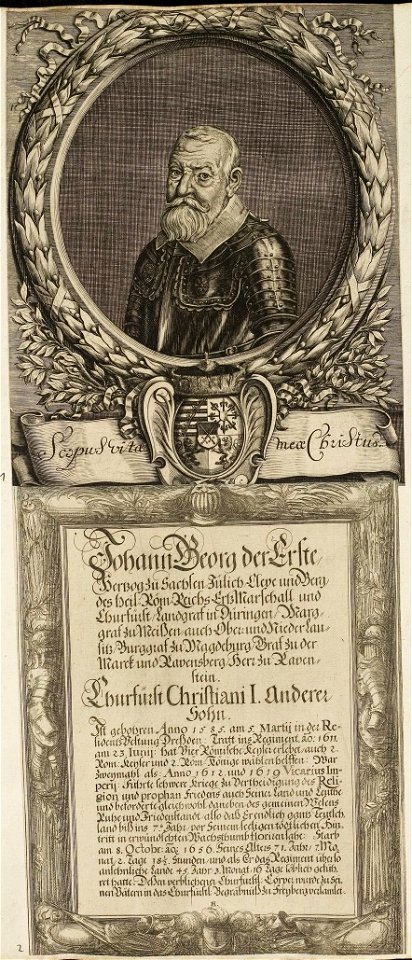 Scopus vitæ meæ Christus.
1
Johann Georg der Erste,
Hertzog zu Sachsen Jülich Cleve und Berg
des Heil. Röm. Reichs Ertz Marschall und
Churfürst, Landgraf in Düringen, Marg-
graf zu Meißen auch Ober- und Nieder Lau-
sitz, Burggraf zu Magdeburg, Graf zu der
Marck und Ravensberg, Herr zu Raven-
stein.
Churfürst Christiani I. Anderer
Sohn.
Ist gebohren Anno 1585. am 5. Martij in der Re-
sidents Vestung Dreßden, Tratt ins Regiment, ao: 1611
am 23. Junij: hat Vier Römische Keyser erlebet, auch 2.
Röm. Keyser und 2. Röm. Könige wählen helffen: War
Zweymahl als Anno 1612 und 1619 Vicarius Im-
perij: Führte schwere Kriege zu Vertheidigung des Reli-
gion und prophan Friedens auch Seiner Land und Leuthe
und beforderte gleichwohl daneben des gemeinen Wesens
Ruhe und Friedenstand, also daß Er endlich gantz Teutsch-
land biß ins 7. Jahr, vor Seinem seeligen tödtlichen Hin-
tritt in erwündschten Wachsthumb florira sahe: Starb
am 8. Octobr. ao: 1656. Seines Alters 71. Jahr, 7. Mo-
nat, 2. Tage 18½ Stunden, und als Er das Regiment über so
ansehnliche Lande 45. Jahr 3. Monat 16 Tage löblich gefüh-
ret hatte. Deßen verblichener Churfürstl. Cörper wurde zu Sei-
nen Vätern in das Churfürstl. Begräbnüß zu Freyberg versamlet.
8.
2